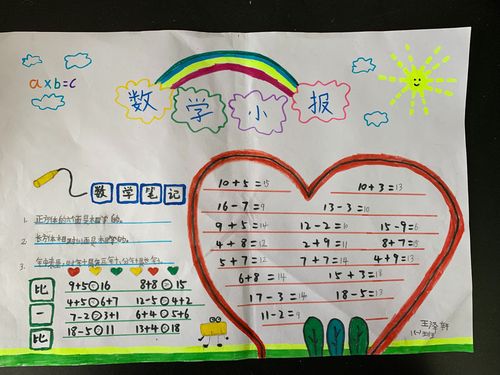 a×b=c
数学小报
数学笔记
1. 正方体的六个面是相同的。
2. 长方体相对的面是相同的。
3.
比一比
9+5○16 8+8○15
4+5○6+7 12-5○4+2
7-2○3+1 6+4○5+6
18-5○11 13+4○18
10+5=15 10+3=13
16-7=9 13-3=10
9+5=14 12-2=10 15-9=6
4+8=12 2+9=11 8+7=15
5+7=12 7+7=14 4+9=13
6+8=14 15+3=18
17-3=14 18-5=13
11-2=9